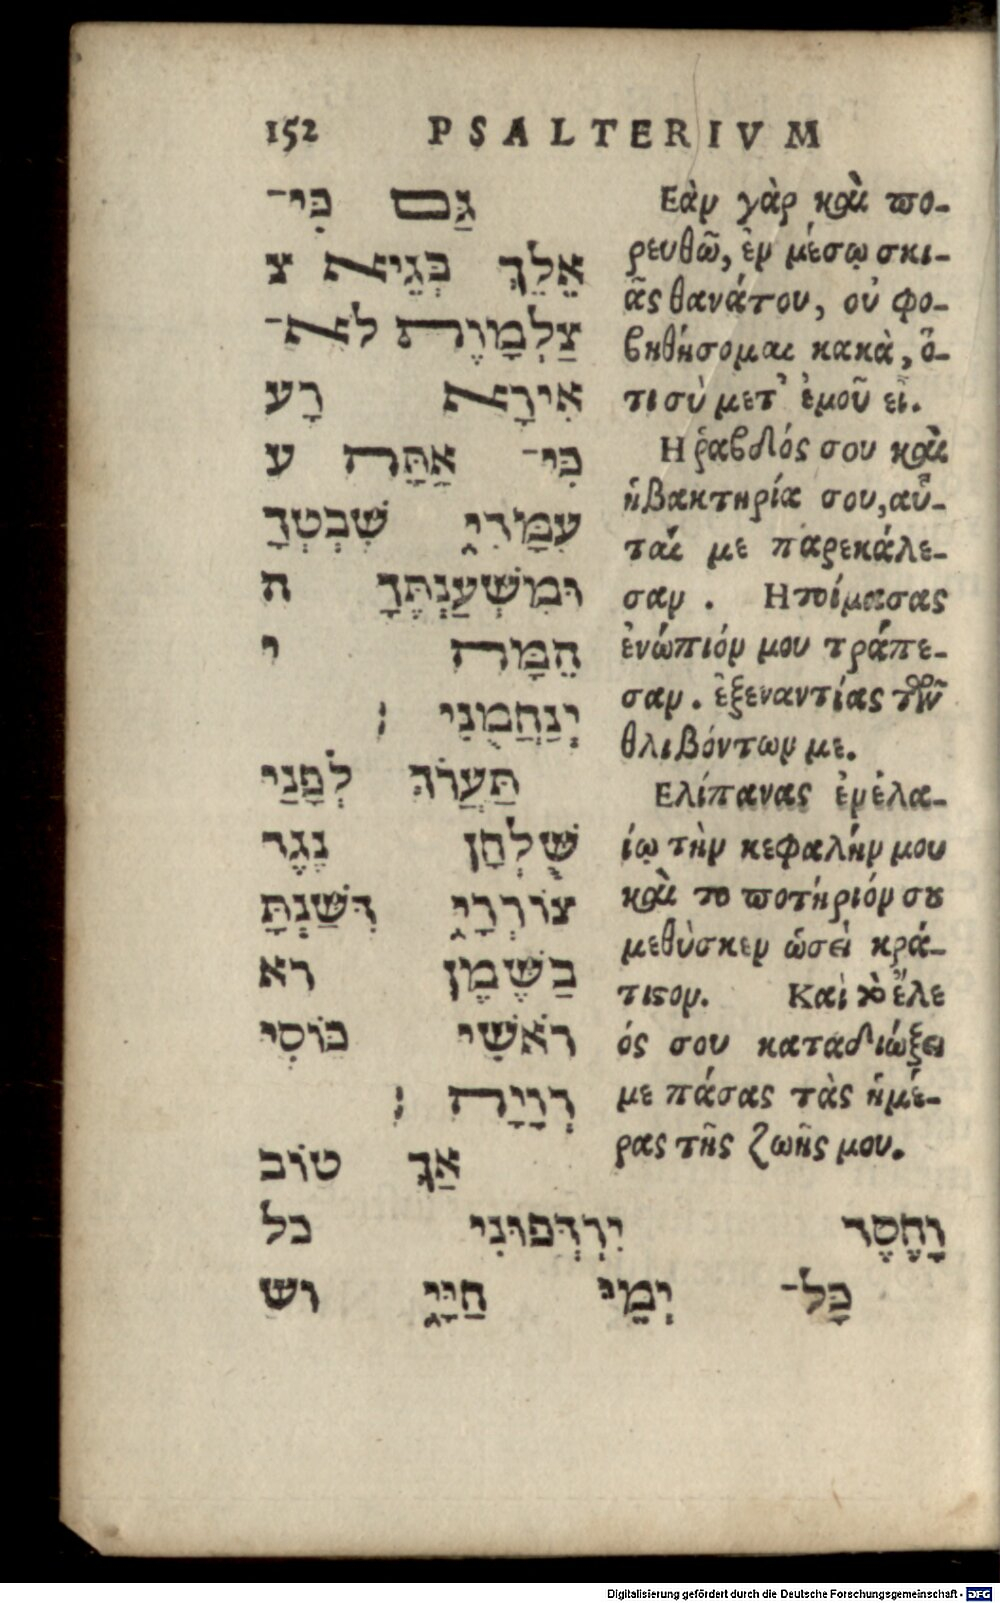 152 PSALTERIVM
גַּם כִּי־
אֵלֵךְ בְּגֵיא צ
צַלְמָוֶת לֹא־
אִירָא רָע
כִּי־ אַתָּה ע
עִמָּדִי שִׁבְטְךָ
וּמִשְׁעַנְתֶּךָ ה
הֵמָּה י
יְנַחֲמֻנִי ׃
תַּעֲרֹךְ לְפָנַי
שֻׁלְחָן נֶגֶד
צוֹרְרָי דִּשַּׁנְתָּ
בַשֶּׁמֶן רא
רֹאשִׁי כּוֹסִי
רְוָיָה ׃
אַךְ טוֹב
וָחֶסֶד יִרְדְּפוּנִי כל
כָּל־ יְמֵי חַיָּי וש
Εὰν γὰρ καὶ πο-
ρευθῶ, ἐν μέσῳ σκι-
ᾶς θανάτου, οὐ φο-
βηθήσομαι κακὰ, ὅ-
τι σὺ μετ' ἐμοῦ εἶ.
Η ῥαβδός σου καὶ
ἡ βακτηρία σου, αὗ-
ταί με παρεκάλε-
σαν . Ητοίμασας
ἐνώπιόν μου τράπε-
σαν . ἐξεναντίας τῶν
θλιβόντων με.
Ελίπανας ἐν ἐλα-
ίῳ τὴν κεφαλήν μου
καὶ το ποτήριόν σου
μεθύσκεν ὡσεὶ κρά-
τιστον. Καὶ τὸ ἔλε
ός σου καταδιώξει
με πάσας τὰς ἡμέ-
ρας τῆς ζωῆς μου.
Digitalisierung gefördert durch die Deutsche Forschungsgemeinschaft - DFG